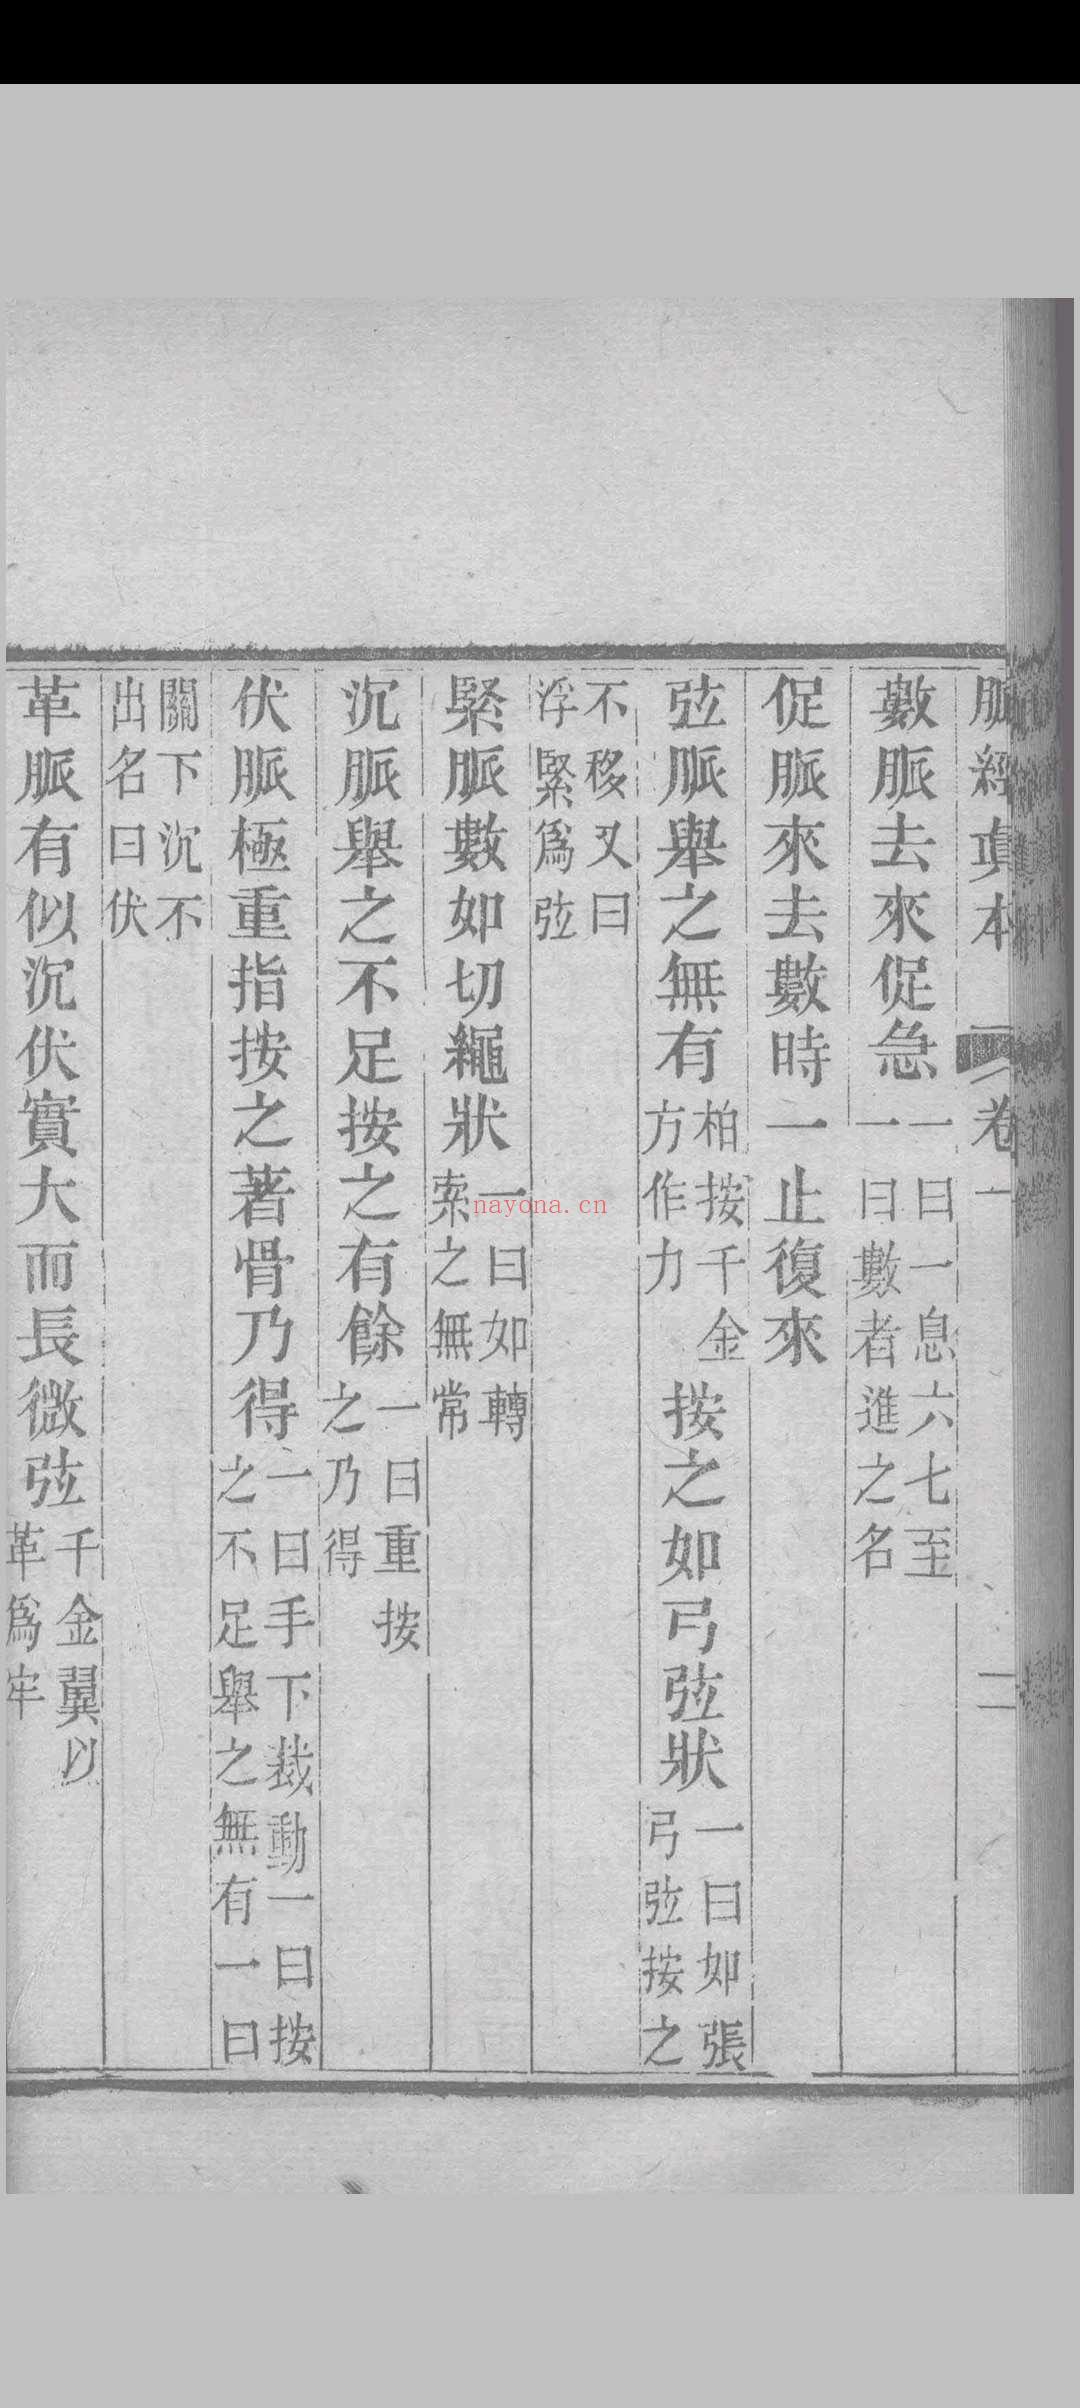 脈經真本 卷一 二
數脈去來促急一曰一息六七至一曰數者進之名
促脈來去數時一止復來
弦脈舉之無有柏按千金方作力按之如弓弦狀一曰如張弓弦按之
不移又曰浮緊爲弦
緊脈數如切繩狀一曰如轉索之無常
沉脈舉之不足按之有餘一曰重按之乃得
伏脈極重指按之著骨乃得一曰手下裁動一曰按之不足舉之無有一曰
關下沉不出名曰伏
革脈有似沉伏實大而長微弦千金翼以革爲牢
nayona.cn